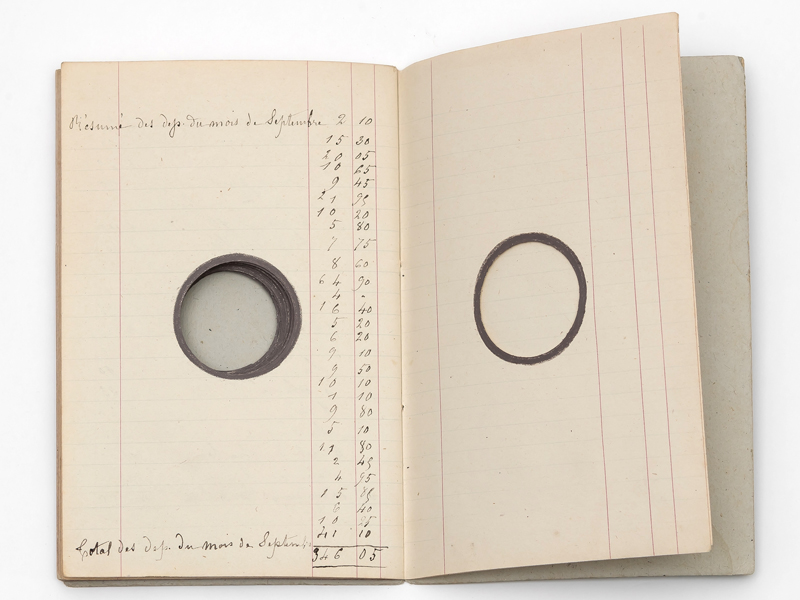 Résumé des dep. du mois de Septembre 2 10
15 30
20 05
10 65
9 45
21 95
10 20
5 80
7 75
8 60
64 90
4 -
16 40
5 20
6 20
9 10
9 50
10 10
1 10
9 80
5 10
11 80
2 45
4 95
15 85
6 40
10 25
41 10
total des dep. du mois de Septemb
346 05